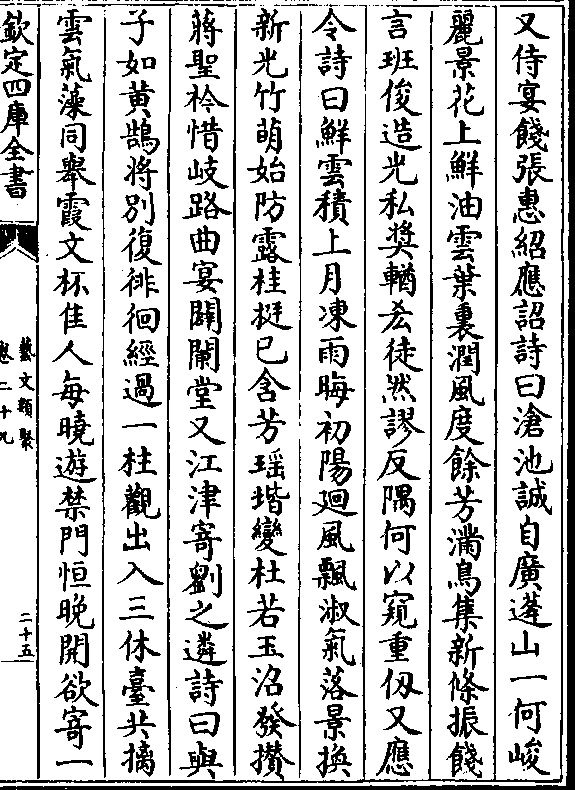 又侍宴餞張惠紹應詔詩曰滄池誠自廣蓬山一何峻
麗景花上鮮油雲葉裏潤風度餘芳滿鳥集新條振餞
言班俊造光私獎輶吝徒然謬反隅何以窺重仭又應
令詩曰鮮雲積上月凍雨晦初陽廻風飄淑氣落景換
新光竹萌始防露桂挺已含芳瑶堦變杜若玉沼發攅
蔣聖衿惜岐路曲宴闢蘭堂又江津寄劉之遴詩曰與
子如黄鵠將別復徘徊經過一柱觀出入三休臺共摛
雲氣藻同舉霞文杯佳人每曉遊禁門恒晚開欲寄一
欽定四庫全書
藝文類聚
卷二十九
二十五